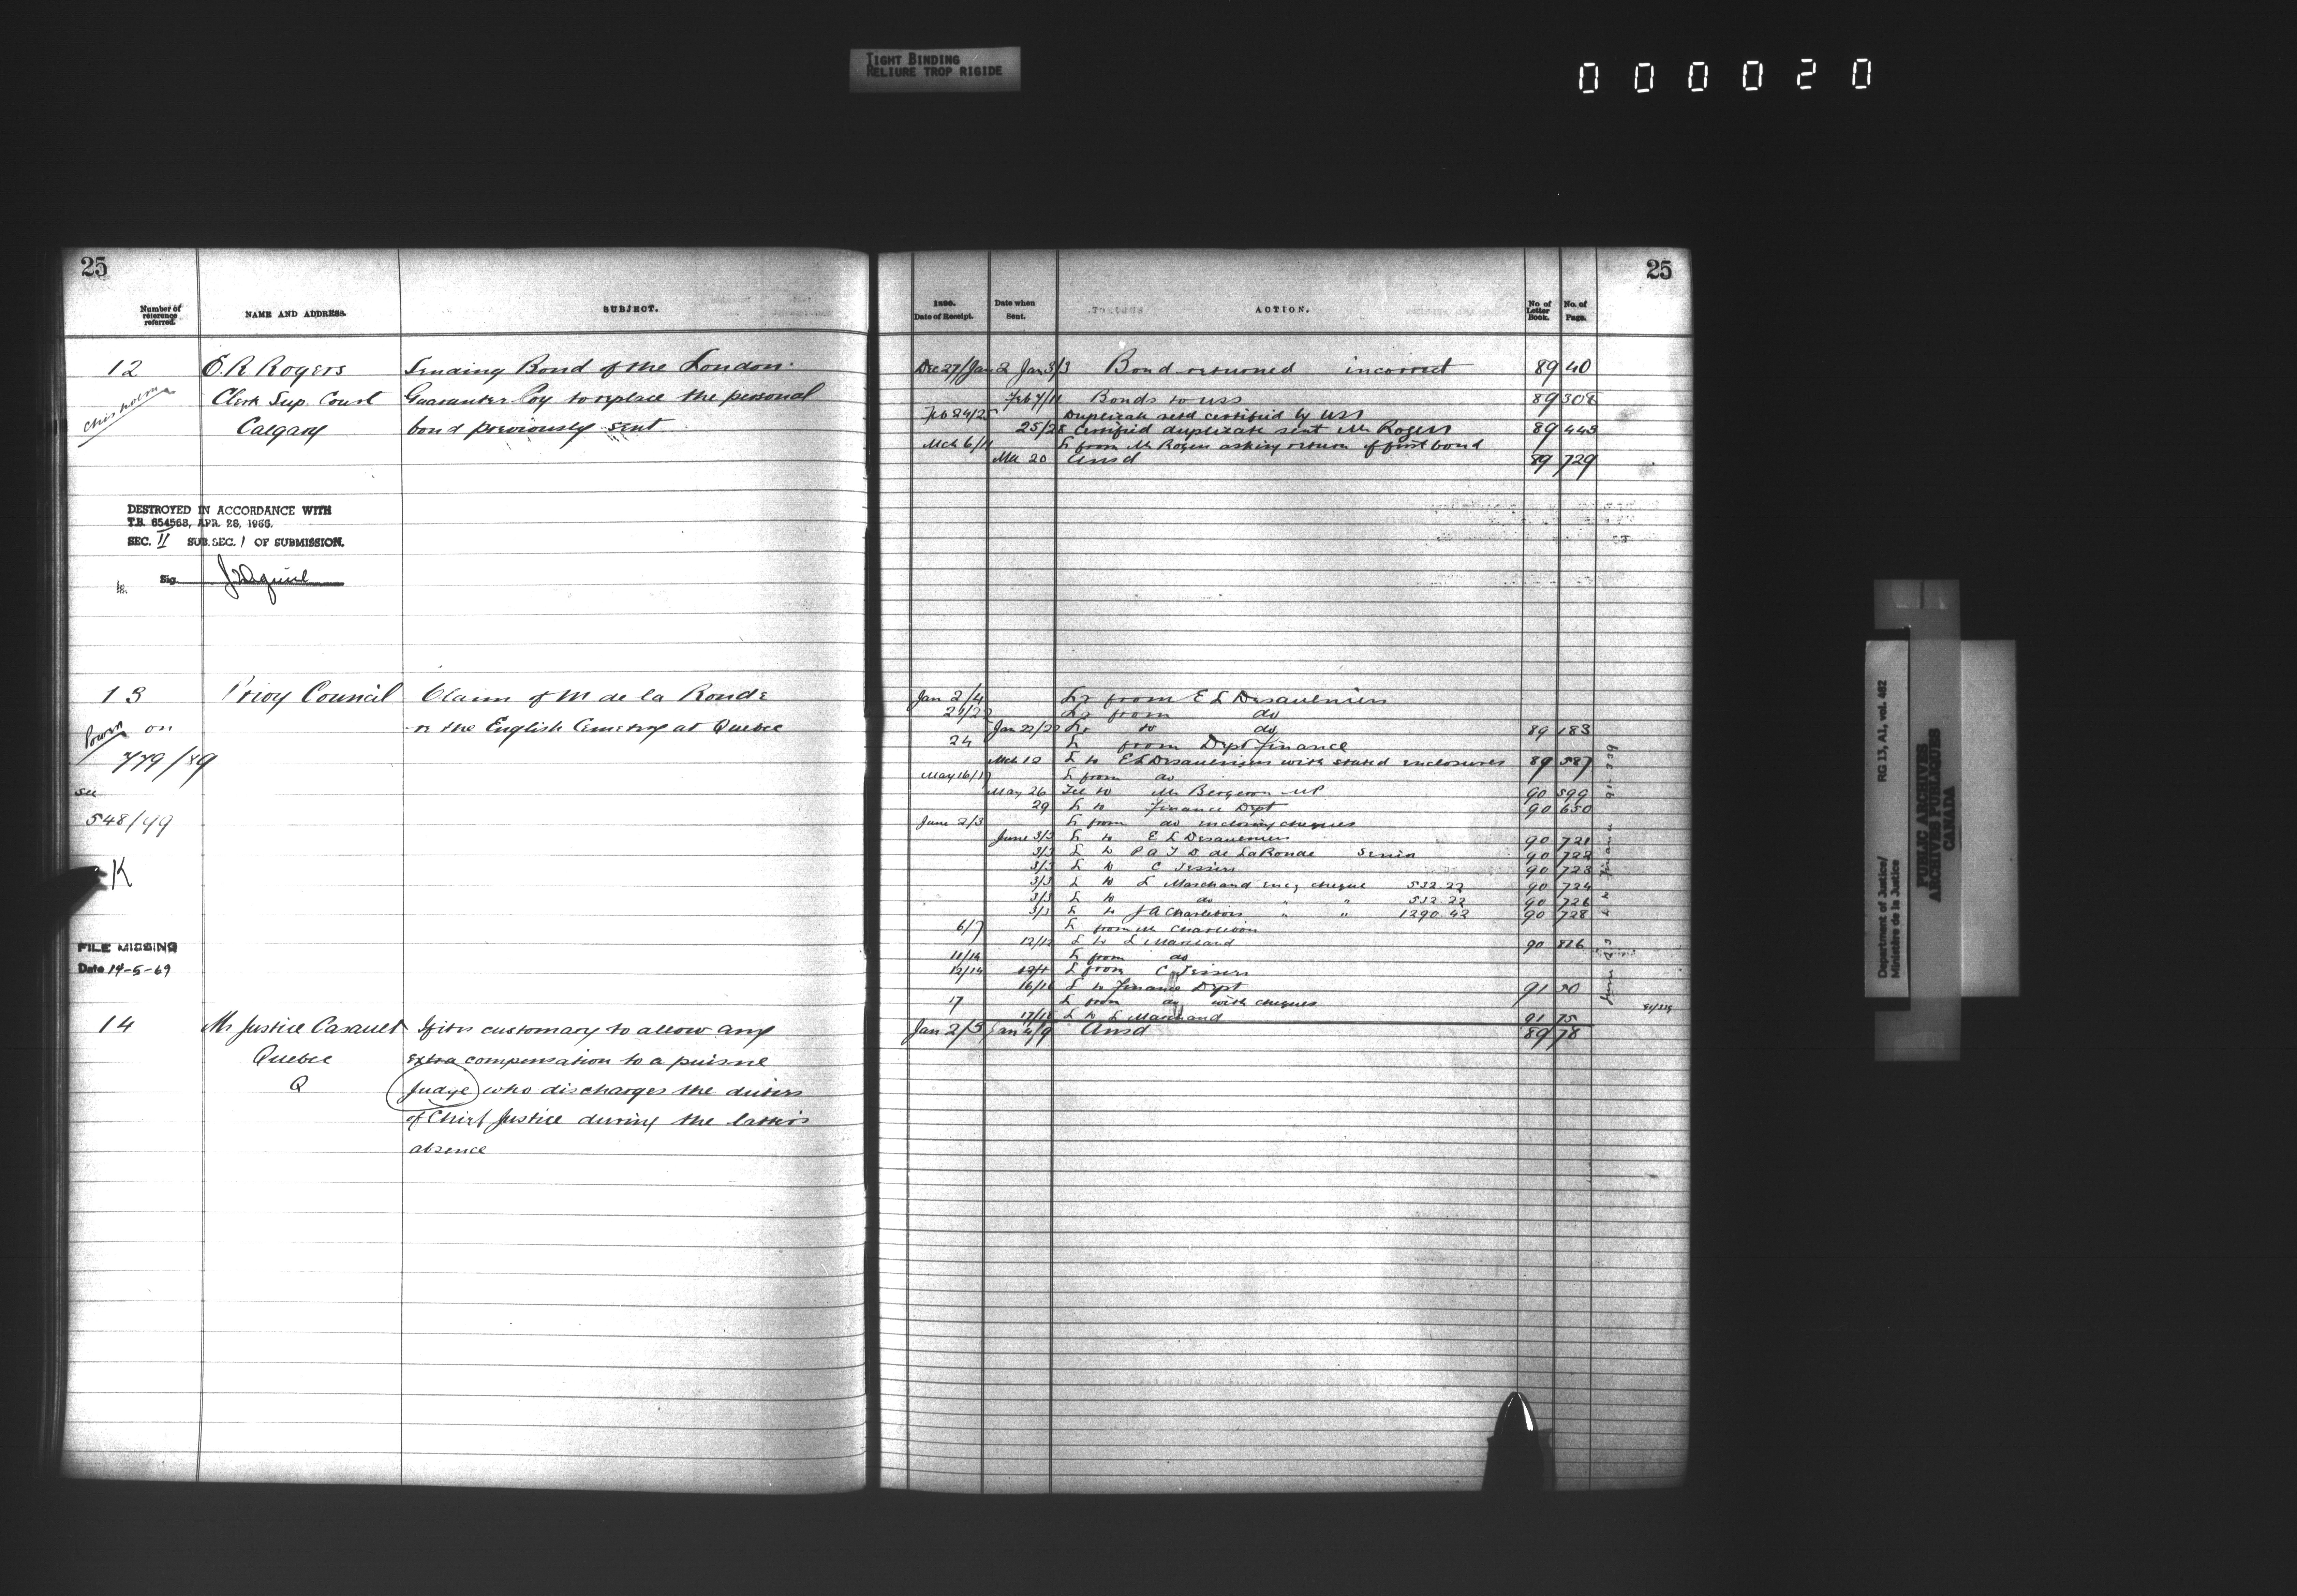 TIGHT BINDING
RELIURE TROP RIGIDE
000020
25
Number of reference referred.
NAME AND ADDRESS.
SUBJECT.
12
E. R Rogers
Sending Bond of the London
Chisholm
Clerk Sup. Court
Guarantee Coy to replace the personal
Calgary
bond previously sent
DESTROYED IN ACCORDANCE WITH
T.B. 654563, APR. 28, 1966.
SEC. II SUB. SEC. 1 OF SUBMISSION.
Sig.
13
Privy Council
Claim of M de la Ronde
Power on
re the English Cemetry at Quebec
779/89
see
548/99
K
FILE MISSING
Date 14-5-69
14
Mr Justice Casault
If it is customary to allow any
Quebec
extra compensation to a puisne
Q
Judge who discharges the duties
of Chief Justice during the latter's
absence
25
Date of Receipt.
Date when Sent.
ACTION.
No of Letter Book.
No. of Page.
Dec 27/Jan 2 Jan 3/3 Bond returned incorrect 89 40
Feb 7/11 Bonds to USS 89 308
Feb 24/25 Duplicate retd certified by USS
25/28 Certified duplicate sent Mr Rogers 89 443
Mch 6/11 L from Mr Rogers asking return of first bond
Mch 20 Ansd 89 729
Jan 2/4 Lr from E L Desaulniers
21/22 Lr from do
Jan 22/22 Lr to do 89 183
24 L from Dept Finance
Mch 12 L to E L Desaulniers with stated enclosures 89 587
May 16/17 L from do
May 26 Tel to Mr Bergeron MP 90 599
29 L to Finance Dept 90 650
June 2/3 L from do inclosing cheques
June 3/3 L to E L Desaulniers 90 721
3/3 L to P A T D de LaRonde Senior 90 722
3/3 L to C Tessier 90 723
3/3 L to L Marchand enc, cheque 532.22 90 724
3/3 L to do " " 532.22 90 726
3/3 L to J A Charlebois " " 1290.42 90 728
6/7 L from Mr Charlebois
12/12 L to L Marchand 90 816
11/14 L from do
12/14 L from C Tessier
16/16 L to Finance Dept 91 50
17 L from do with cheques
17/18 L to L Marchand 91 75
Jan 2/3 Jan 4/9 Ansd 89 78
Department of Justice/ RG 13, A1, vol. 482
Ministère de la Justice
PUBLIC ARCHIVES
ARCHIVES PUBLIQUES
CANADA